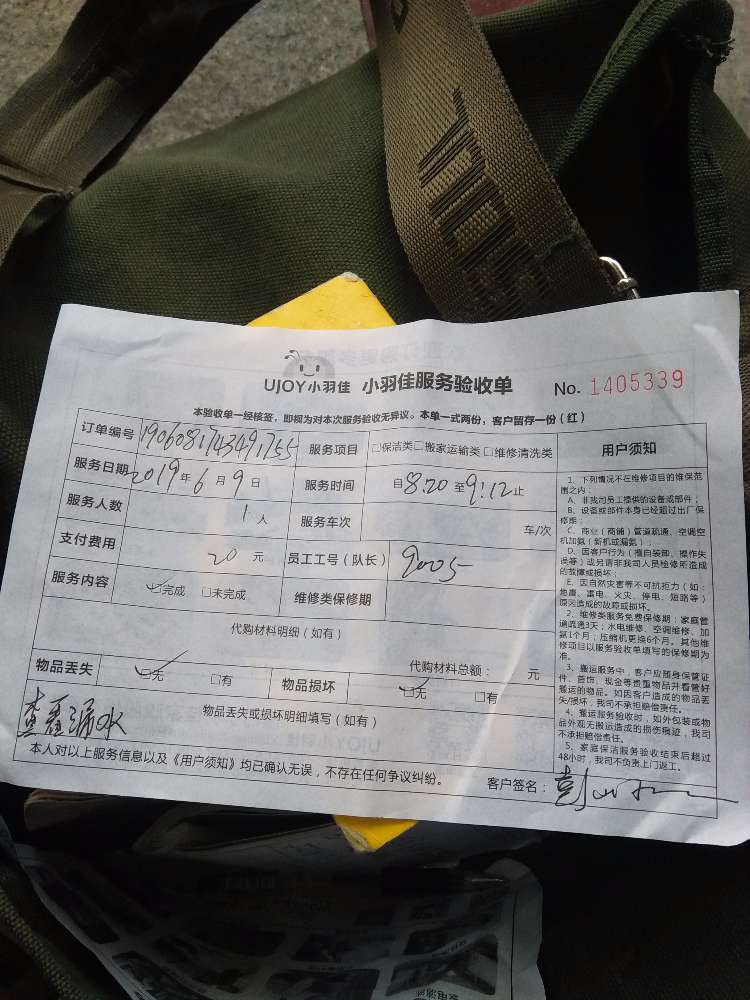 UJOY小羽佳 小羽佳服务验收单 No. 1405339
本验收单一经核签，即视为对本次服务验收无异议。本单一式两份，客户留存一份（红）
订单编号 1906081743491755 服务项目 □保洁类□搬家运输类□维修清洗类
服务日期 2019年6月9日 服务时间 自8:20至9:12止
服务人数 1人 服务车次 车/次
支付费用 20元 员工工号（队长） 9005
服务内容 □完成 □未完成 维修类保修期
代购材料明细（如有）
代购材料总额： 元
物品丢失 □无 □有 物品损坏 □无 □有
物品丢失或损坏明细填写（如有）
漏水
本人对以上服务信息以及《用户须知》均已确认无误，不存在任何争议纠纷。
客户签名：
用户须知
1、下列情况不在维修项目的维保范
围之内：
A、非我司员工提供的设备或部件；
B、设备或部件本身已经超过出厂保
修期；
C、商业（商铺）管道疏通、空调空
机加氨（新机或漏氨）；
D、因客户行为（擅自装卸、操作失
误等）或另请非我司人员检修所造成
的故障或损坏；
E、因自然灾害等不可抗拒力（如：
地震、雷电、火灾、停电、短路等）
原因造成的故障或损坏。
2、维修类服务免费保修期：家庭管
道疏通3天；水电维修、空调维修、加
氨1个月；压缩机更换6个月。其他维
修项目以服务验收单填写的保修期为
准。
3、搬运服务中，客户应随身保管证
件、首饰、现金等贵重物品并看管好
搬运的物品。如因客户造成的物品丢
失/损坏，我司不承担赔偿责任。
4、搬运服务验收时，如外包装或物
品外观无搬运造成的损伤痕迹，我司
不承担赔偿责任。
5、家庭保洁服务验收结束后超过
48小时，我司不负责上门返工。